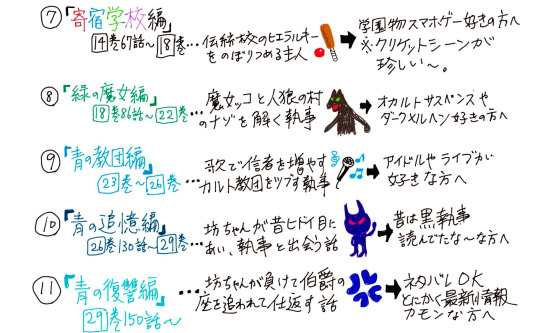 ⑦『寄宿学校編』
14巻67話〜18巻…
伝統校のヒエラルキー
をのぼりつめる主人
➡学園物スマホゲー好きの方へ
※クリケットシーンが
珍しい〜。
⑧『緑の魔女編』
18巻86話〜22巻…
魔女ッコと人狼の村
のナゾを解く執事
➡オカルトサスペンスや
ダークメルヘン好きの方へ
⑨『青の教団編』
23巻〜26巻…
歌で信者を増やす
カルト教団をツブす執事
➡アイドルやライブが
好きな方へ
⑩『青の追憶編』
26巻130話〜29巻…
坊ちゃんが昔ヒドイ目に
あい、執事と出会う話
➡昔は黒執事
読んでたな〜な方へ
⑪『青の復讐編』
29巻150話〜
…坊ちゃんが負けて伯爵の
座を追われて仕返す話
➡ネタバレOK
とにかく最新情報
カモンな方へ